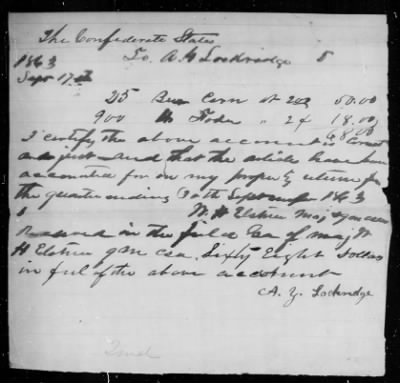 The Confederate States
1863 To. A. Y. Lockridge D
Sept 17th
25 Bus Corn at 200 50.00
900 lbs Foder " 2¢ 18.00
68.00
I certify the above account is Correct
and just and that the articles have been
accounted for on my property return for
the quarter ending 30th September 1863
W. H. Maj & qm csa
Received in the field Ga of Maj W
H qm csa, Sixty Eight Dollars
in ful of the above account
A. Y. Lockridge